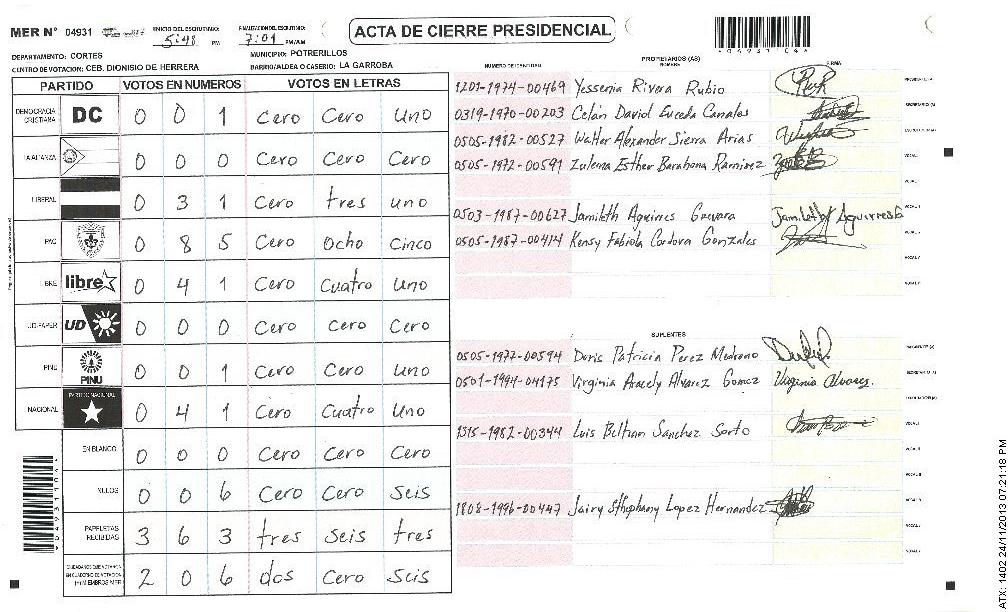 MER N° 04931
INICIO DEL ESCRUTINIO: 5:48 PM
FINALIZACION DEL ESCRUTINIO: 7:01 PM/AM
ACTA DE CIERRE PRESIDENCIAL
DEPARTAMENTO: CORTES
MUNICIPIO: POTRERILLOS
CENTRO DE VOTACION: CEB. DIONISIO DE HERRERA
BARRIO/ALDEA O CASERIO: LA GARROBA
PARTIDO VOTOS EN NUMEROS VOTOS EN LETRAS
DEMOCRACIA CRISTIANA DC 0 0 1 Cero Cero Uno
LA ALIANZA 0 0 0 Cero Cero Cero
LIBERAL 0 3 1 Cero tres uno
PAC 0 8 5 Cero Ocho Cinco
LIBRE libre 0 4 1 Cero Cuatro uno
UD-FAPER UD 0 0 0 Cero Cero Cero
PINU PINU 0 0 1 Cero Cero Uno
NACIONAL PARTIDO NACIONAL 0 4 1 Cero Cuatro Uno
EN BLANCO 0 0 0 Cero Cero Cero
NULOS 0 0 6 Cero Cero Seis
PAPELETAS RECIBIDAS 3 6 3 tres seis tres
CIUDADANOS QUE VOTARON EN CUADERNO DE VOTACION 2 0 6 dos Cero Seis
PROPIETARIOS (AS)
NUMERO DE IDENTIDAD NOMBRE FIRMA
1201-1974-00469 Yessenia Rivera Rubio
0319-1970-00203 Celan David Euceda Canales
0505-1982-00527 Walter Alexander Sierra Arias
0505-1972-00591 Zulema Esther Barahona Ramirez
0503-1987-00627 Jamileth Aguirres Guevara
0505-1987-00414 Kensy Fabiola Cordova Gonzales
SUPLENTES
0505-1977-00594 Doris Patricia Perez Medrano
0501-1994-04175 Virginia Aracely Alvarez Gomez Virginia Alvarez.
1315-1982-00344 Luis Beltran Sanchez Sorto
1808-1996-00447 Jairy Sthephany Lopez Hernandez
ATX: 1402 24/11/2013 07:21:18 PM